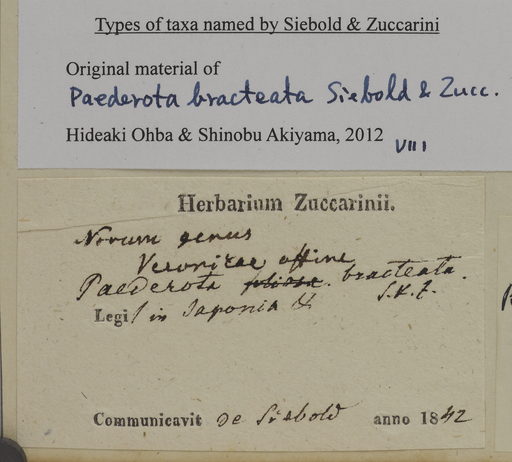 Types of taxa named by Siebold & Zuccarini
Original material of
Paederota bracteata Siebold & Zucc.
Hideaki Ohba & Shinobu Akiyama, 2012 VIII
Herbarium Zuccarinii.
Novum genus
Veronicae affine
Paederota bracteata.
S. & Z.
Legi in Japonia
Communicavit de Siebold anno 1842